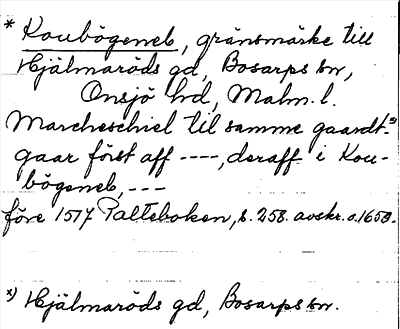 * Koubögeneb, gränsmärke till
Hjälmaröds gd, Bosarps sn,
Onsjö hd, Malm. l.
Marcheschiel til samme gaardt x)
gaar först aff ----, deraff i Kou-
bögeneb, ---
före 1517 Palteboken, s. 258. avskr. o. 1650.
x) Hjälmaröds gd, Bosarps sn.